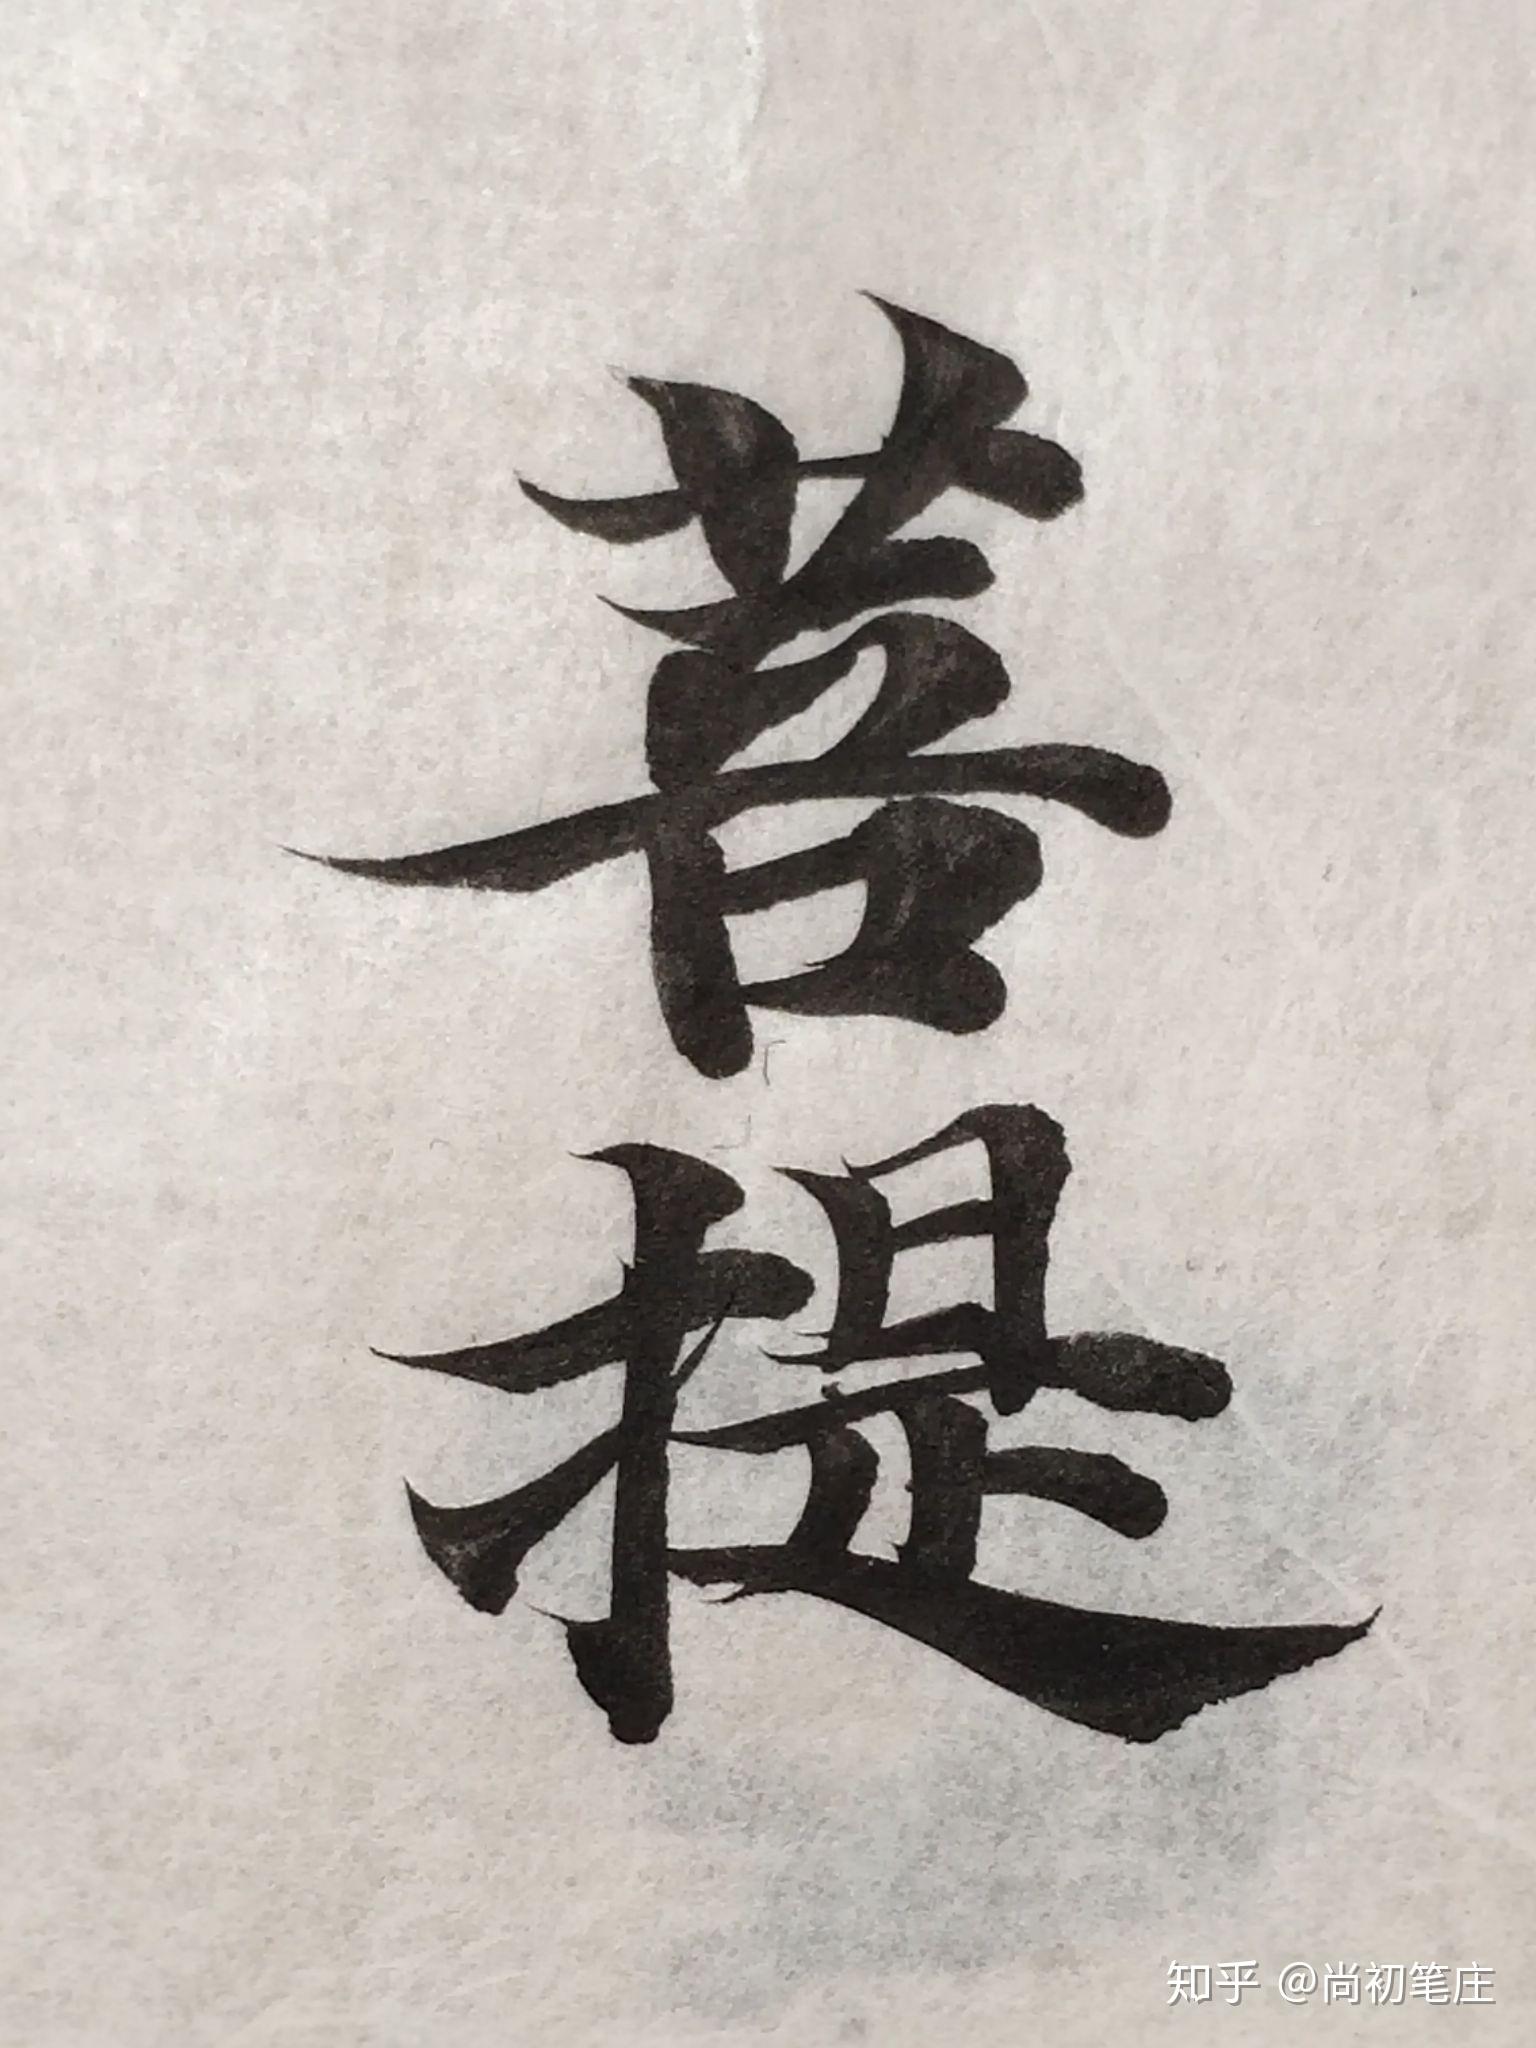 菩
提
知乎 @尚初笔庄